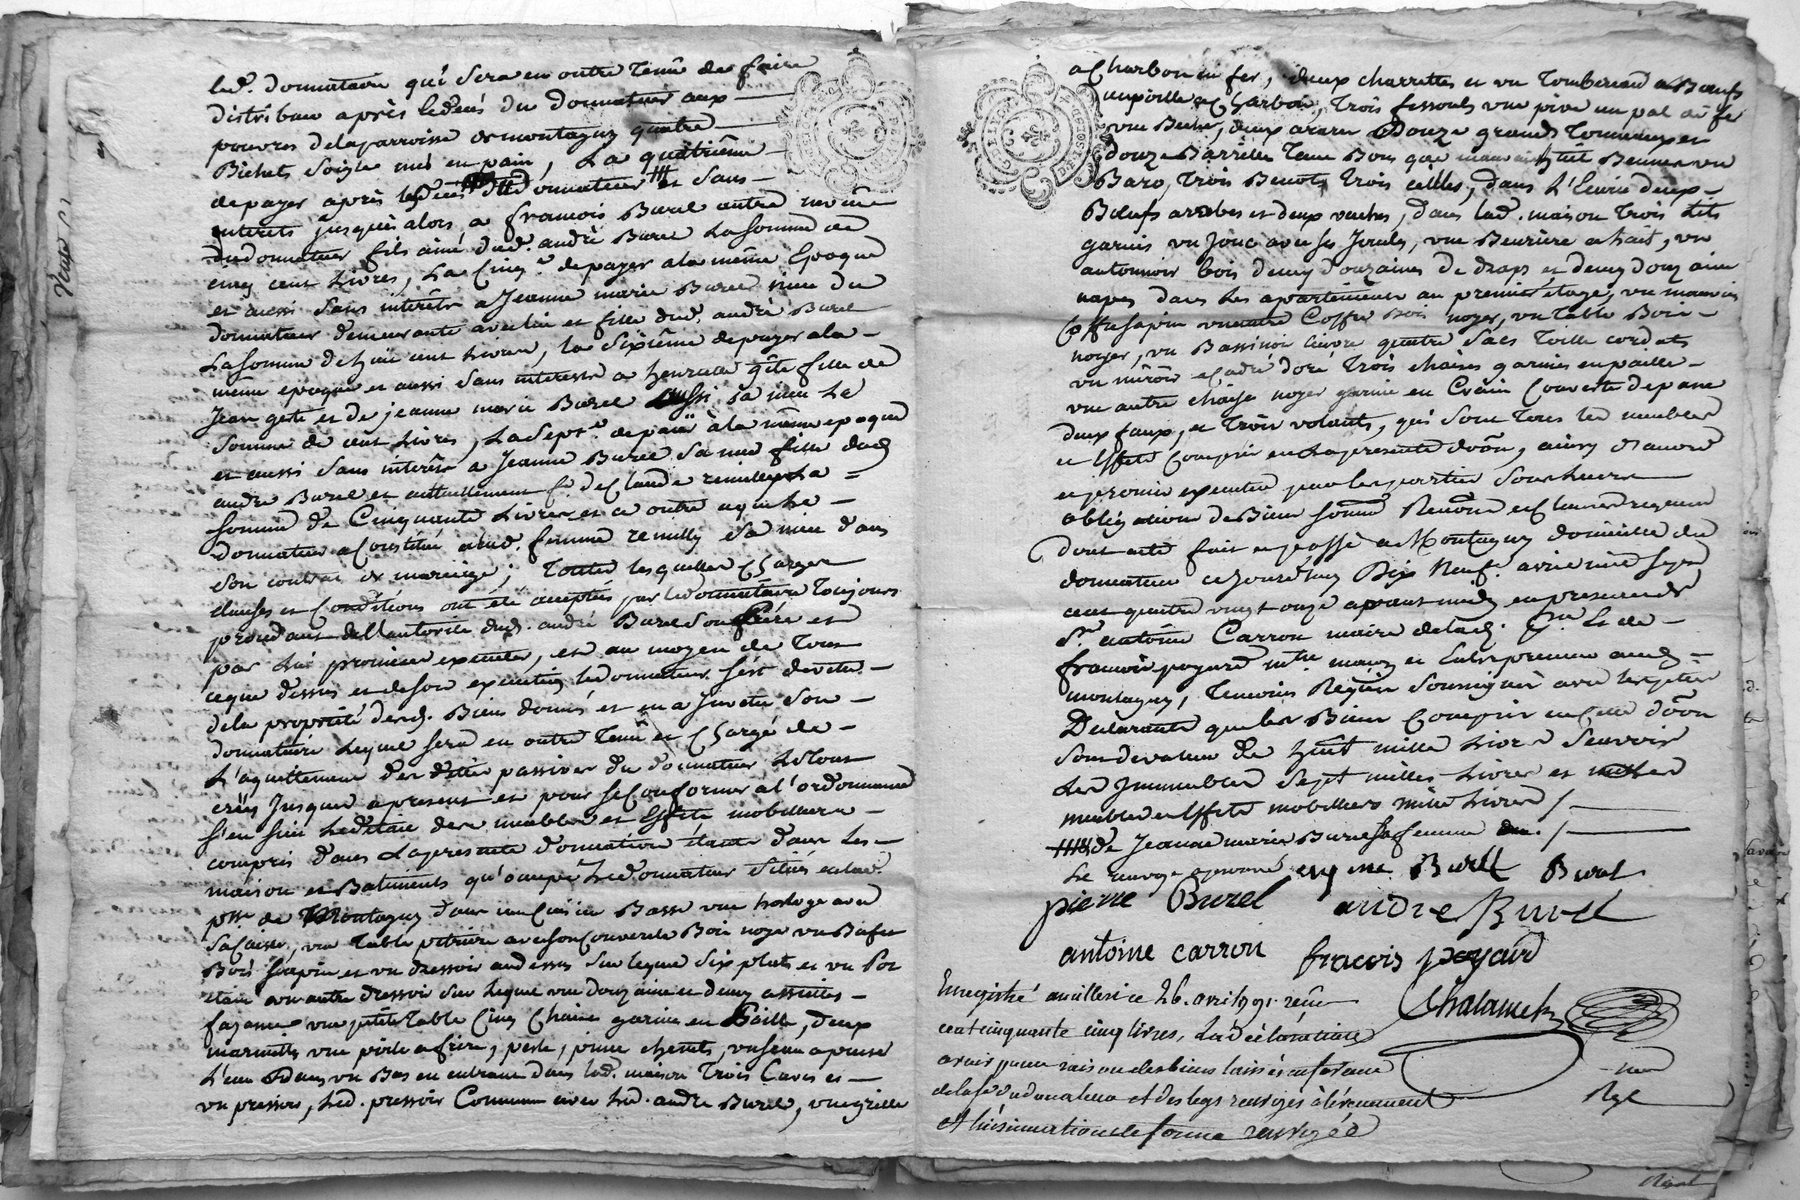 led. donnataire qui sera en outre tenu de faire
distribuer après le deces du donnateur aux
pauvres de la parroisse de montagny quatre
Bichets soigle mis en pain, La quatrième
de payer après le deces du donnateur et sans
interets jusques alors, a francois Burel autre neveu
du donnateur fils ainé dud. andré Burel La somme de
cinq cent Livres, La Cinq.e de payer a la même Epoque
et aussi sans interêts a Jeanne marie Burel niece du
donnateur demeurante avec lui et fille dud. andré Burel
La somme de huit cent Livres, la sixième de payer a la
même epoque et aussi sans interets a henriette gête fille de
Jean gete et de jeanne marie Burel aussi sa niece La
somme de cent Livres, La sept.e de païer à la même epoque
et aussi sans interêts a Jeanne Burel sa niece fille dud.
andré Burel et actuellement f.e de Claude remilly La
somme de Cinquante Livres et ce outre ce que le
donnateur a Constitué a lad. femme remilly sa niece dans
son contrat de mariage; Toutes lesquelles Charges
clauses et Conditions ont été acceptés par le donnataire Toujours
procedant de l'autorité dud. andré Burel son Père et
par lui promises executer, et au moyen de Tout
ce que dessus et de son execution le donnateur s'est devetu
de la propriété desd. Biens donnés et en a Investu son
donnataire Lequel sera en outre Tenu et Chargé de
L'aquittement des dettes passives du donnateur Le tout
créés Jusques a present et pour se Conformer a l'ordonnance
s'en suit Le detail des meubles et Effets mobilliers
compris dans La presente donnation étant dans Les
maison et Batiments qu'occupe Le donnateur situés en lad.
psse de Montagny dans une Cuisine Basse une horloge avec
sa Caisse, une Table petriere avec son Couvercle Bois noyer un Bufet
Bois sapin et un dressoir au dessus sur lequel six plats et un Pot
etain un autre dressoir sur lequel une douzaine et demy assiettes
fayance une petite table Cinq Chaises garnies en Paille, deux
marmittes une poele a frire, pelle, pince chenets, un seau a puiser
L'eau Dans un Bas en entrant dans lad. maison Trois Caves et
un pressoir, Led. pressoir Commun avec led. andré Burel, une grille
a Charbon en fer, deux charrettes et un Tombereau a Bœufs
une pelle a Charbon, Trois fessouls une pive un pal de fer
une Beche, deux araires Douze grands Tonneaux et
douze Barrilles Tant Bons que mauvais huit Bennes un
Baro, Trois Benots, Trois celles, dans L'Ecurie deux
Bœufs arables et deux vaches, dans lad. maison Trois Lits
garnis un Joug avec ses Joucles, une Beurière a lait, un
antonnoir bois demy douzaines de draps et demy douzaine
napes dans les apartements au premier étage, un mauvais
Coffre sapin un autre Coffre Bois noyer, un Table Bois
noyer, un Bassinoir cuivre quatre sacs Toille cordats
un miroir a Cadre doré Trois chaises garnies en paille
une autre chaise noyer garnie en Crain Couverte de pane
deux faux, et Trois volants, qui sont Tous les meubles
et Effets Compris en La presente doõn, ainsy D'accord
et promis executer par les parties sous leurs
obligations de Biens soumõ Renonõ et Clauses requises
dont acte fait et passé a Montagny domicile du
donnateur ce jourd'huy Dix Neuf avril mil sept
cent quatre vingt onze apres midy en presence de
Sr. antoine Carron maire de lad. psse et de
francois poyard mtre macon et Entrepreneur aud.
montagny, Temoins Requis soussignés avec les parties
Declarants que les Biens Compris en Cette doõn
sont de valeur de huit mille Livres sçavoir
Les Immeubles sept milles Livres et milles
meubles et Effets mobilliers mille Livres /.
de Jeanne marie Burel sa femme /.
Le renvoy approuvé Burel Burel
pierre Burel andre Burel
antoine carron fracois poyard
Chalamel
Enregistré a millery ce 26. avril 1791. reçu
cent cinquante cinq livres, La déclaration
avoir pour raison des biens laissés en faveur
de la f. du donateur et des legs renvoyés à l'évenement
et l'insinuation de forme renvoyée